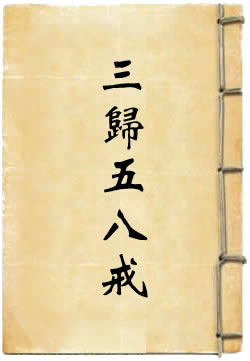 三歸五八戒